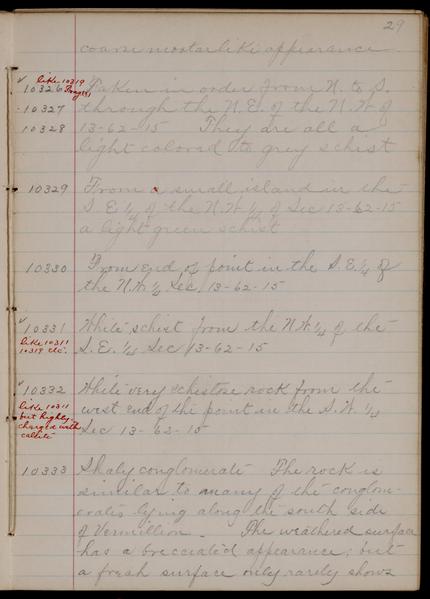 29
coarse mortar like appearance
like 10319
10326 Taken in order from N to S.
10327 through the N.E. of the N.W of
10328 13-62-15 They are all a
light colored to grey schist
10329 From a small island in the
S.E. 1/4 of the N.W. 1/4 of Sec 13-62-15
a light green schist
10330 From end of point in the S.E. 1/4 of
the N.W. 1/4 Sec. 13-62-15
10331 White schist from the N.W. 1/4 of the
like 10311
10319 etc.
S.E. 1/4 Sec 13-62-15
10332 White very schistose rock from the
like 10311
but highly
charged with
calcite
west end of the point in the S.W. 1/4
Sec 13-62-15
10333 Shaly conglomerate The rock is
similar to many of the conglom-
erates lying along the south side
of Vermillion. The weathered surface
has a brecciated appearance; but
a fresh surface only rarely shows